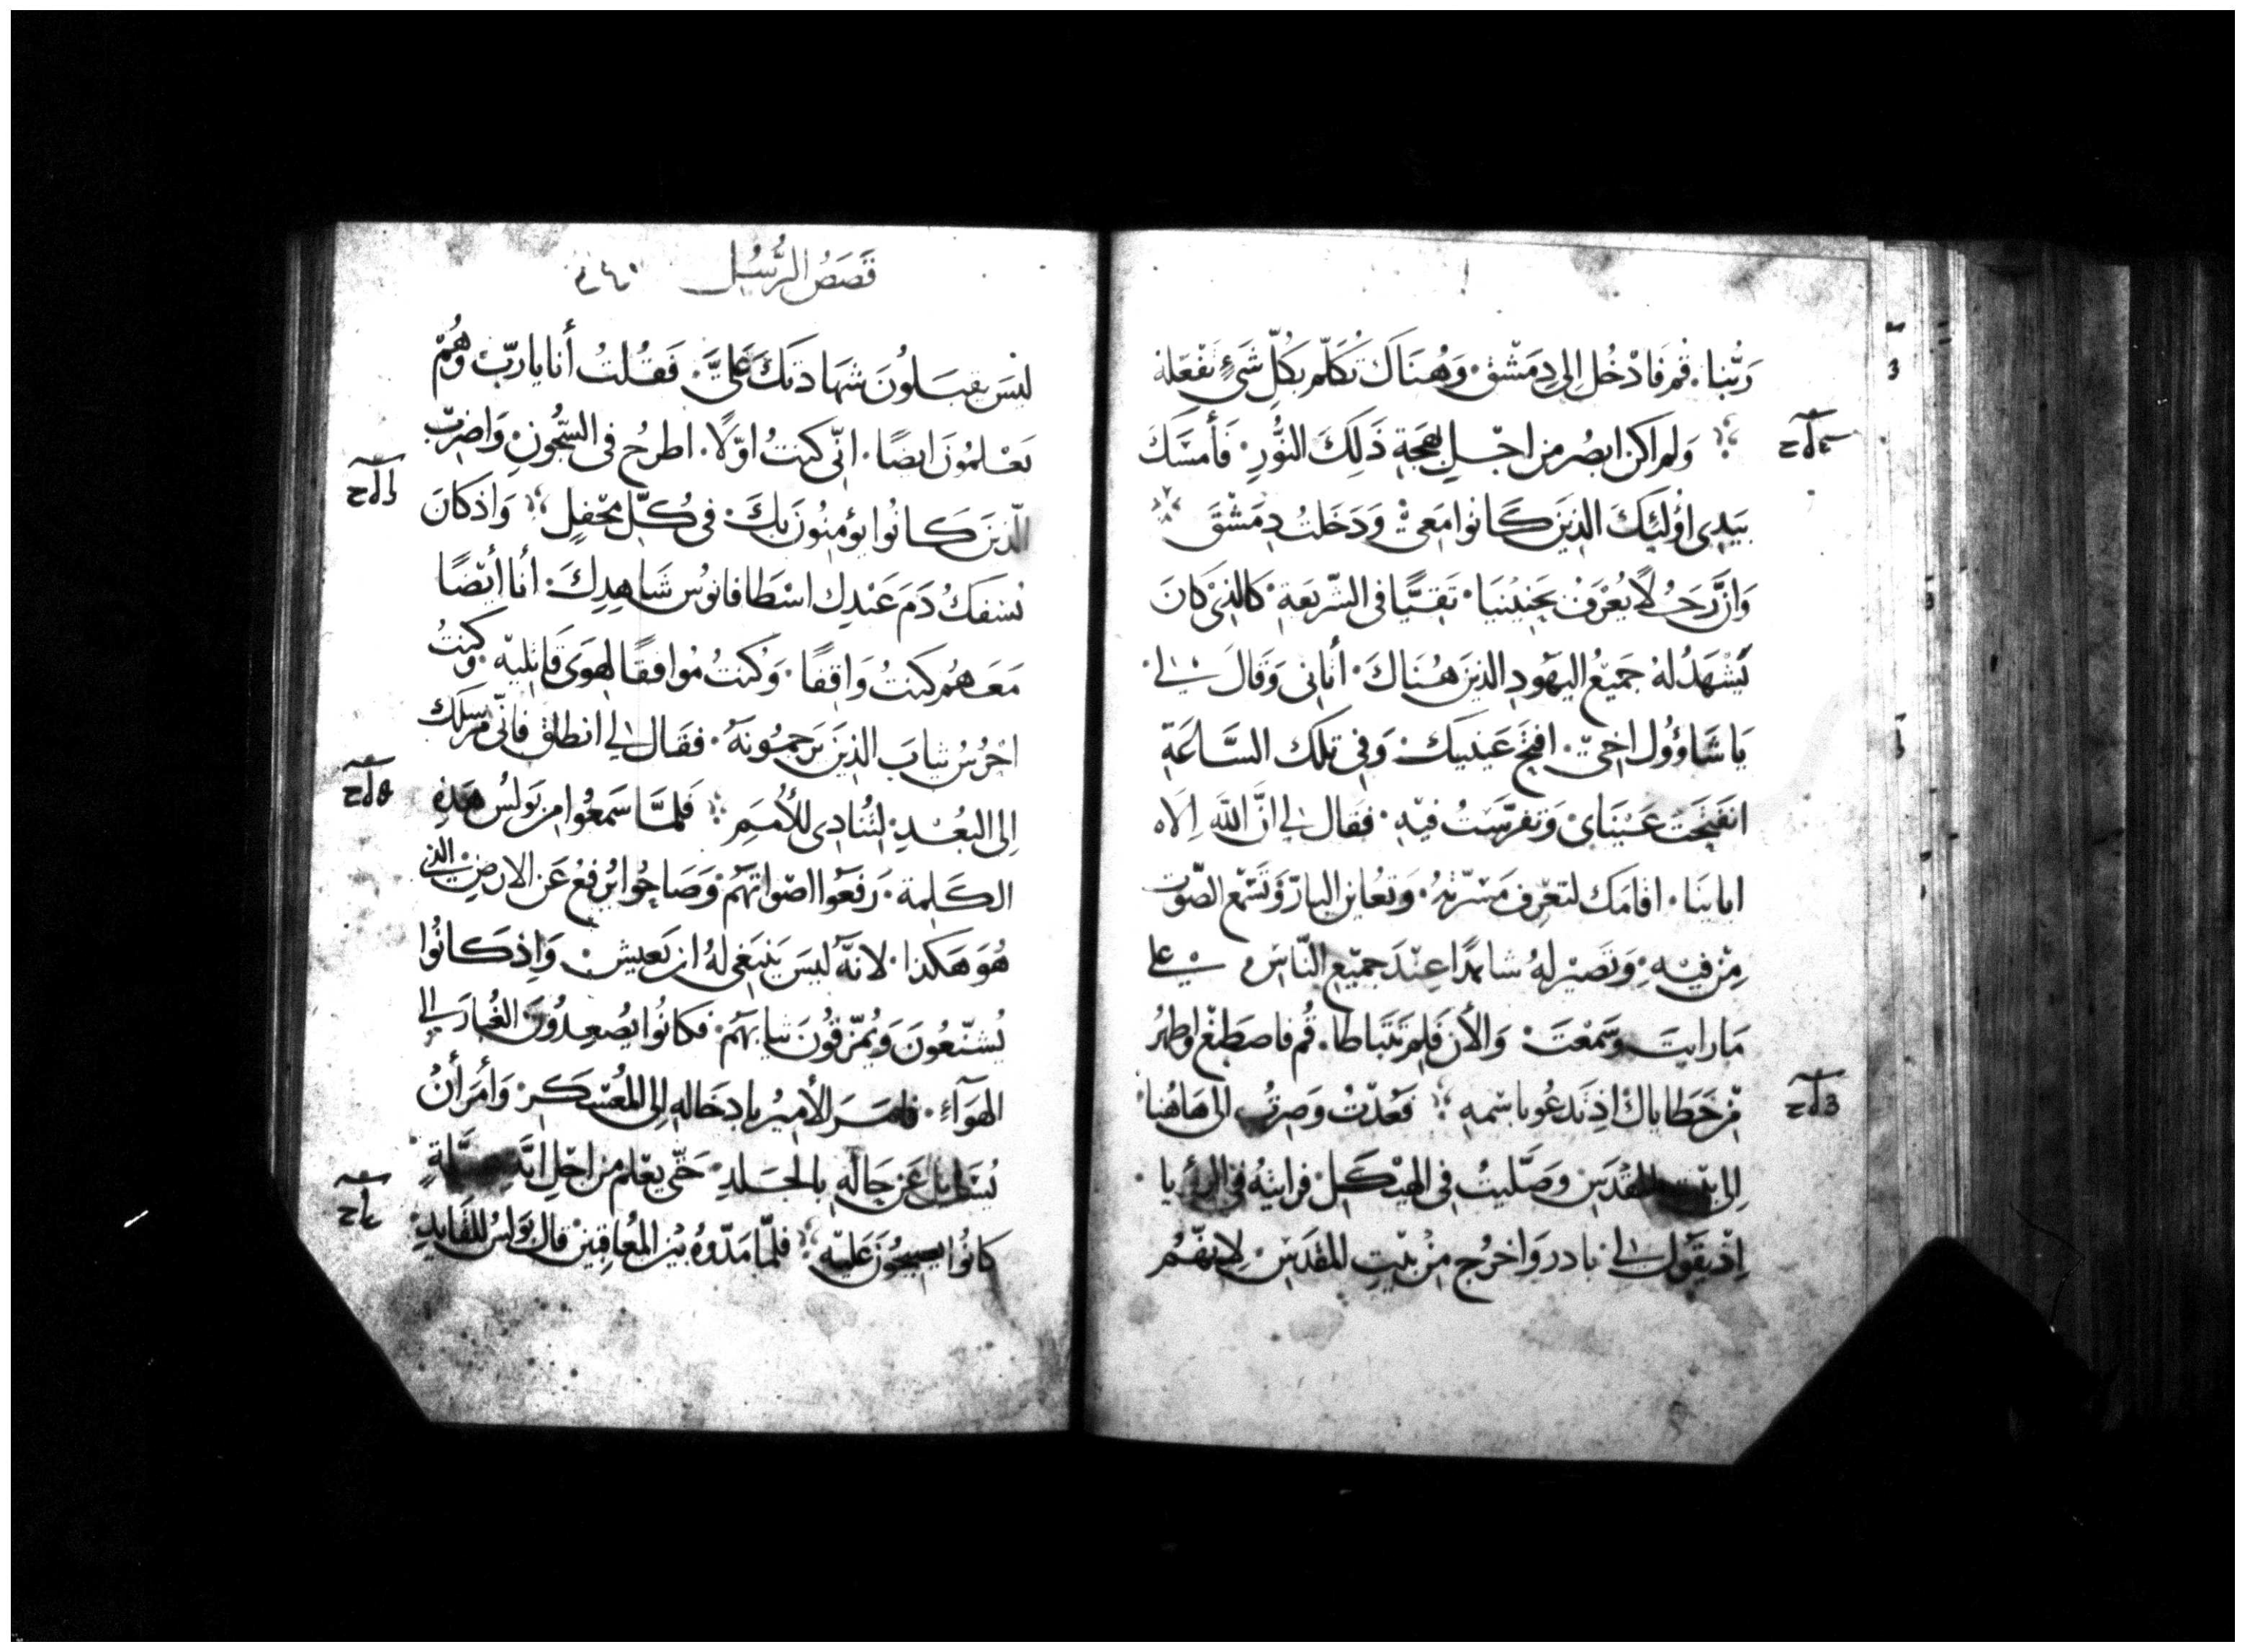 رَبُّنا. قُم فَادْخُل اِلى دِمَشْق. وَهُنَاكَ تُكَلّم بكُلِّ شَيْءٍ تَفْعَله
وَلم اكن ابصُر من اجْل بهجَةِ ذَلِكَ النُّورِ. فَأَمسَكَ
بيَدِى اوُلَئِكَ الذِينَ كَانوا مَعِى وَدَخَلتُ دِمَشْقَ
وَانّ رَجُلاً يُعْرَفُ بحَنِينيَا. تَقِيًّا فى الشّرِيعَة. كَالذِى كَانَ
يَشْهَدُ لهُ جَمِيعُ اليَهُودِ الذينَ هُنَاكَ. أتَانى وَقَالَ لي.
يَا شَاؤُول اخِى. افتح عَينَيكَ. وَفى تِلكَ السَّاعَةِ
انفَتَحَت عَيْنَاىَ وَتفرّسَتُ فيْهِ. فَقال لي انَّ اللّهَ اِلَاه
ابائِنَا. اقامَك لتعْرِف مَسَرّتهُ. وَتعُاين البارّ وَتَسْمَع الصَّوْت
مِنْ فيْهِ. وَتَصيْر لهُ شاهدًا عِنْدَ جَميْعِ النّاس. على
مَا رايتَ وَسَمعْتَ. وَالأن فَلِمَ تتَبَاطا. قُم فاصطبغ واطهُر
مِن خَطاياكَ اذ تَدعُو باسْمهِ. فَعُدْتُ وَصِرتُ الى هَاهُنا
اِلى بَيْت المقدَس وَصَلّيتُ فى الهيْكَل. فرايتهُ فى الرُؤيا.
اِذ يَقول لي. بادر وَاخرُج مِنْ بَيْتِ المقدَسْ. لانّهُم

قَصَصُ الرُّسُل
ليْسَ يَقبَلونَ شهَادَتكَ عَليَّ. فَقُلتُ أنا يا ربّ وَهُمْ
يَعْلمُونَ ايضًا. انّى كنتُ اوّلًا. اطرحُ فى السّجُونِ وَاضرِبْ
الّذينَ كَانُوا يؤمِنُونَ بكَ. فى كُلّ مَحْفِلٍ وَاذ كانَ
يُسْفَكُ دَمَ عَبْدِك اسْطافانوُس شَاهِدِكَ. أنا أيْضًا
مَعَهُم كنتُ وَاقِفًا. وَكُنتُ مُوافقًا لهوَى قَاتليْه وَكنتُ
احْرُسُ ثيابَ الذِينَ يَرجمُونهُ. فقَال لي انطلق فانّى مُرسلكَ
اِلى البُعْدِ. لتُنَادِى للأُمَمِ فَلمَّا سَمَعُوا من بَولسُ هَذِهِ
الكَلِمة. رَفَعُوا اصْواتهُمْ. وَصَاحُوا يُرفعْ عَن الارضِ الذى
هُوَ هَكذا. لانّهُ ليسَ يَنبَغى لهُ ان يَعيش. وَاِذ كَانُوا
يُشنّعُونَ وَيُمزّقُونَ ثيابَهُمْ. فكانُوا يُصْعِدُونَ الغُبارَ الى
الهَوَآءِ. فامَرَ الأميْرُ بادخَالهِ اِلى المعُسْكَرِ. وَأمَرَ أنْ
يُسَايل عَن حَالهِ بالجَلدِ. حَتّى يعْلم من اجْل
كانُوا يصِيْحُونَ عَليْهِ فلمّا مَدّوهُ بَيْن المعُاقِبينَ قال بَولسُ للقايدِ.